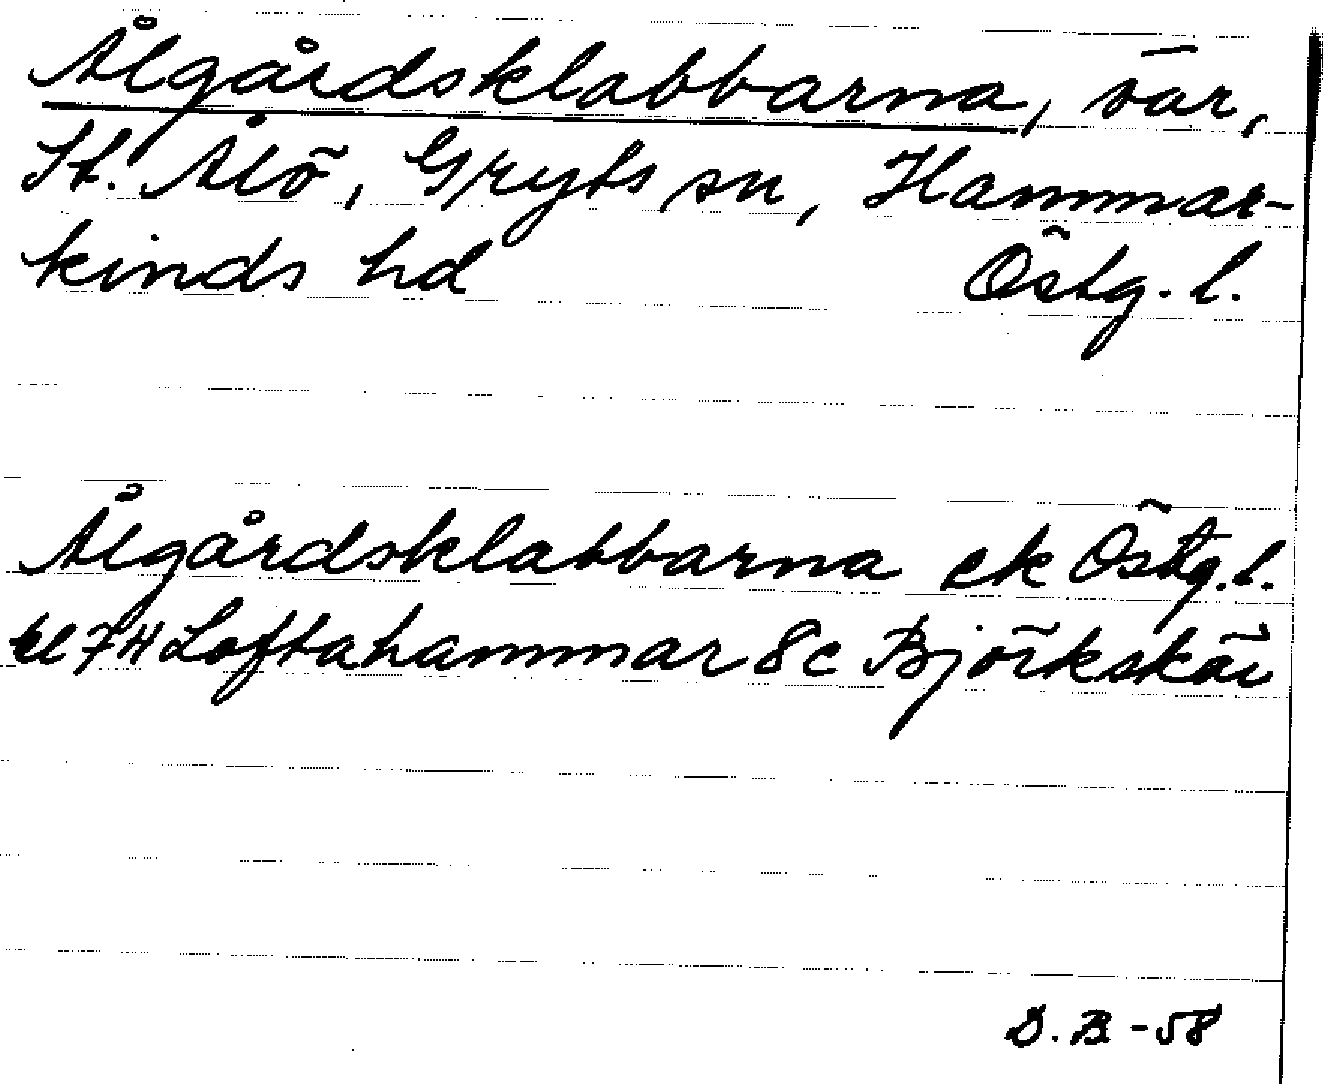 Ålgårdsklabbarna, sär,
St. Ålö, Gryts sn, Hammar-
kinds hd Östg. l.
Ålgårdsklabbarna ek Östg. l.
bl 7H Loftahammar 8c Björkskär
D. B -58